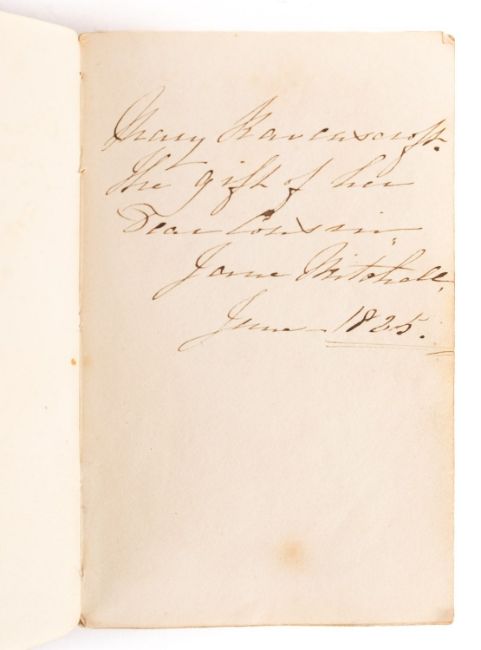 Mary Ravenscroft.
the gift of her
Dear Cousin,
Jane Mitchell,
June 1825.